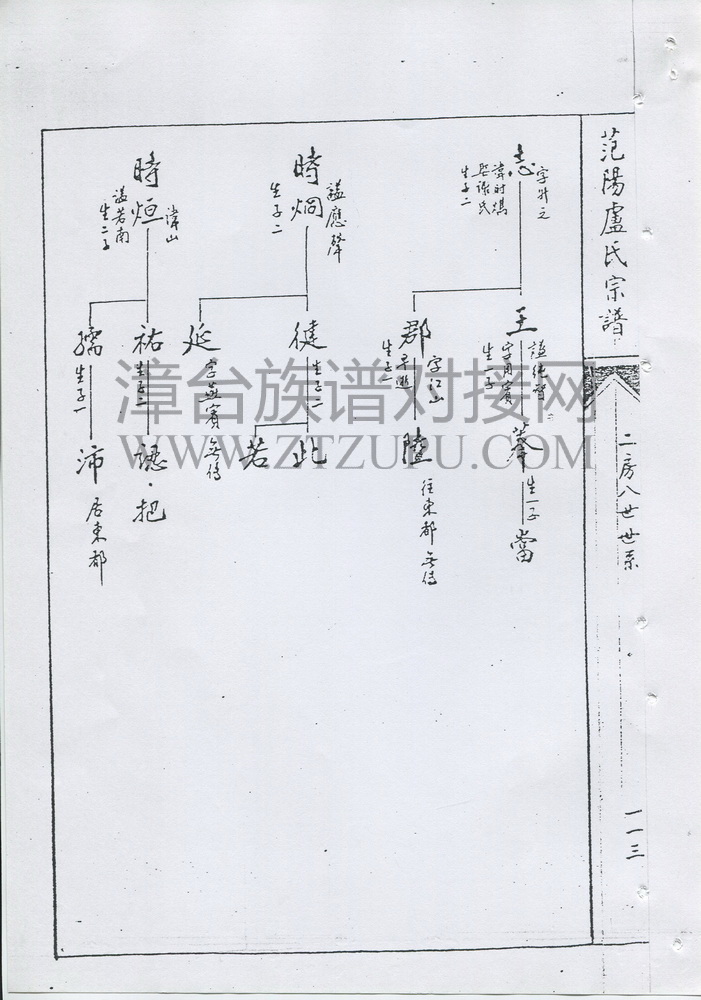 范陽盧氏宗譜
二房八廿世系
一一三
志
字升之
諱時熇
娶張氏
生子二
王
謚純智
字用賓
生一子
生一子
當
郡
字江山
生子一
陞
往東都無傳
時烱
謚應聲
生子二
徤
生子二
此
若
延
字燕賓
無傳
時烜
常山
謚若南
生二子
祐
生子二
認·把
孺
生子一
沛
居東都
漳台族谱对接网
WWW.ZTZUPU.COM